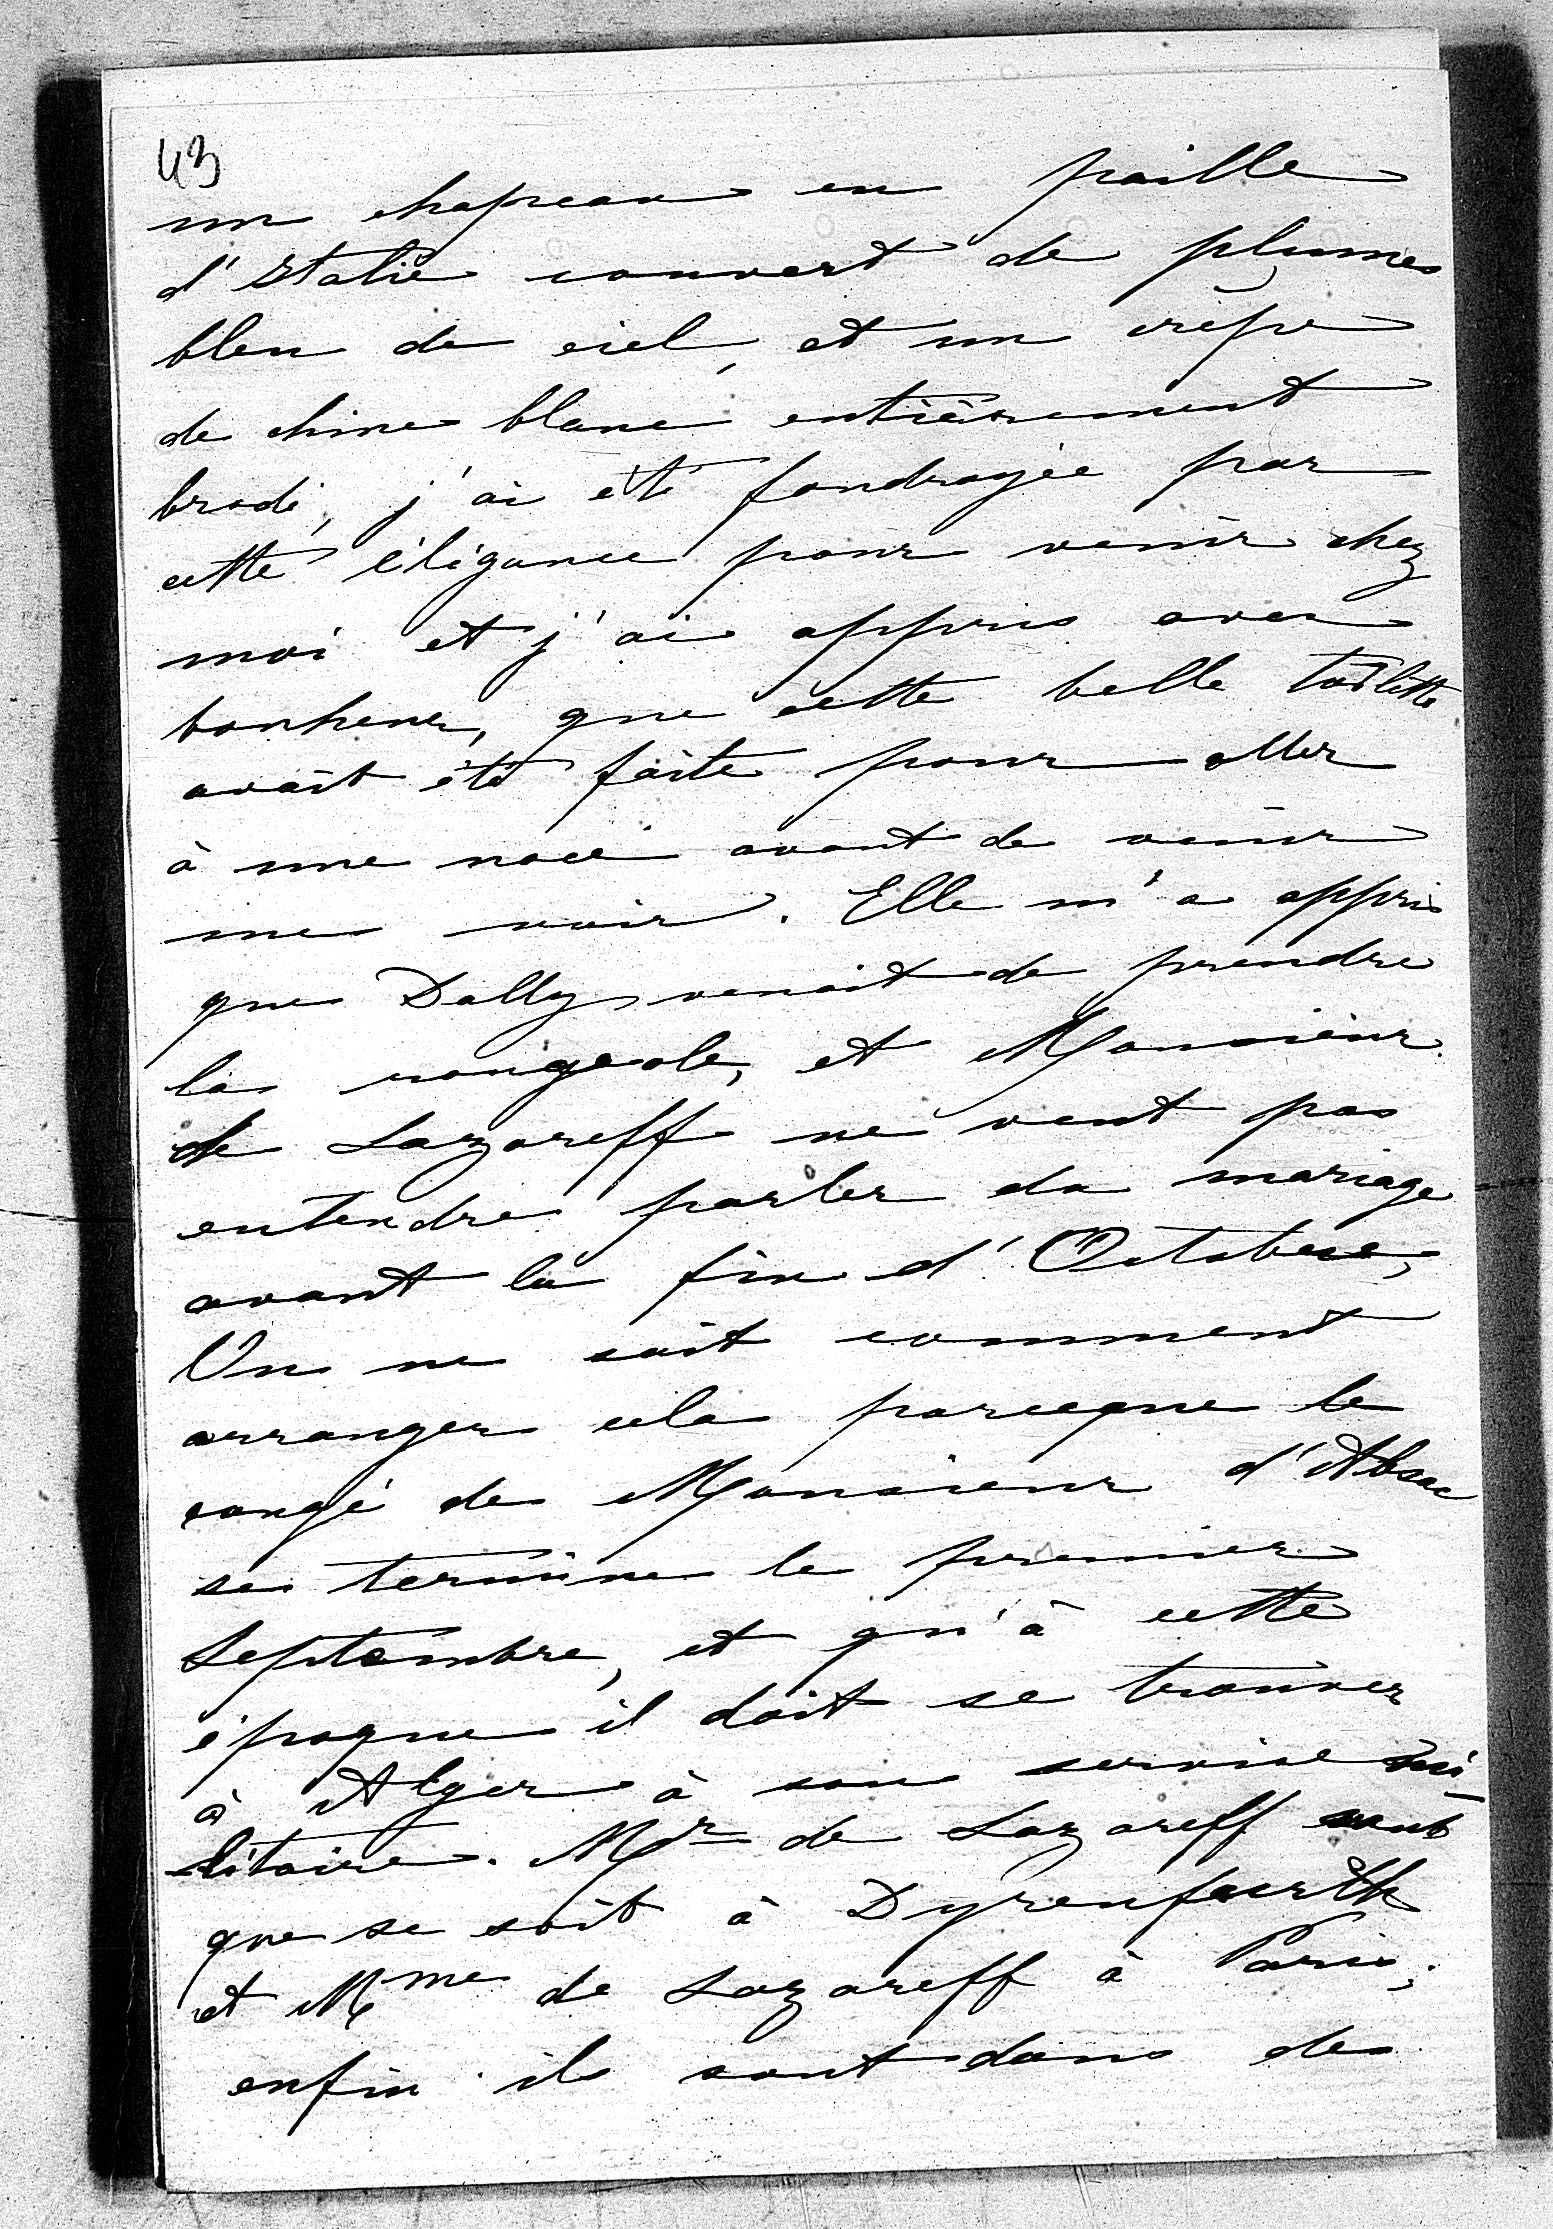 43
un chapeau en paille
d'Italie couvert de plumes
bleu de ciel, et un crêpe
de chine blanc entièrement
brodé, j'ai été foudroyée par
cette élégance pour venir chez
moi et j'ai appris avec
bonheur, que cette belle toilette
avait été faite pour aller
à une noce avant de venir
me voir. Elle m'a appris
que Dolly venait de prendre
la rougeole, et Monsieur
de Lazareff ne veut pas
entendre parler du mariage
avant la fin d'Octobre,
On ne sait comment
arranger cela parceque le
congé de Monsieur d'Absac
se termine le premier
Septembre, et qu'à cette
époque il doit se trouver
à Alger à son service mi-
litaire. Mr de Lazareff veut
que se soit à Dyrenfurth
et Mme de Lazareff à Paris;
enfin ils sont dans des